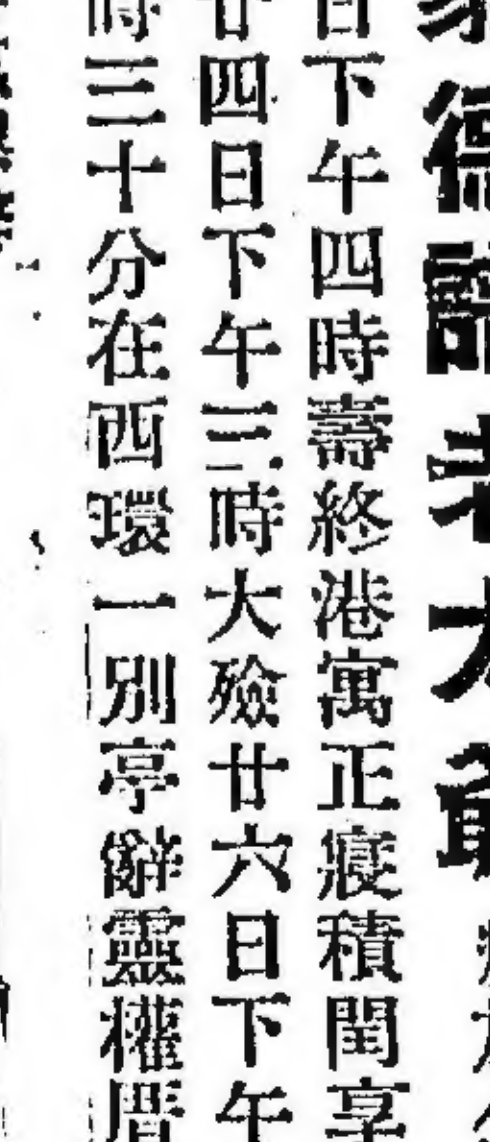 德老太爺
日下午四時壽終港寓正寢積閏享
廿四日下午三時大殮廿六日下午
時三十分在西環一別亭辭靈權厝